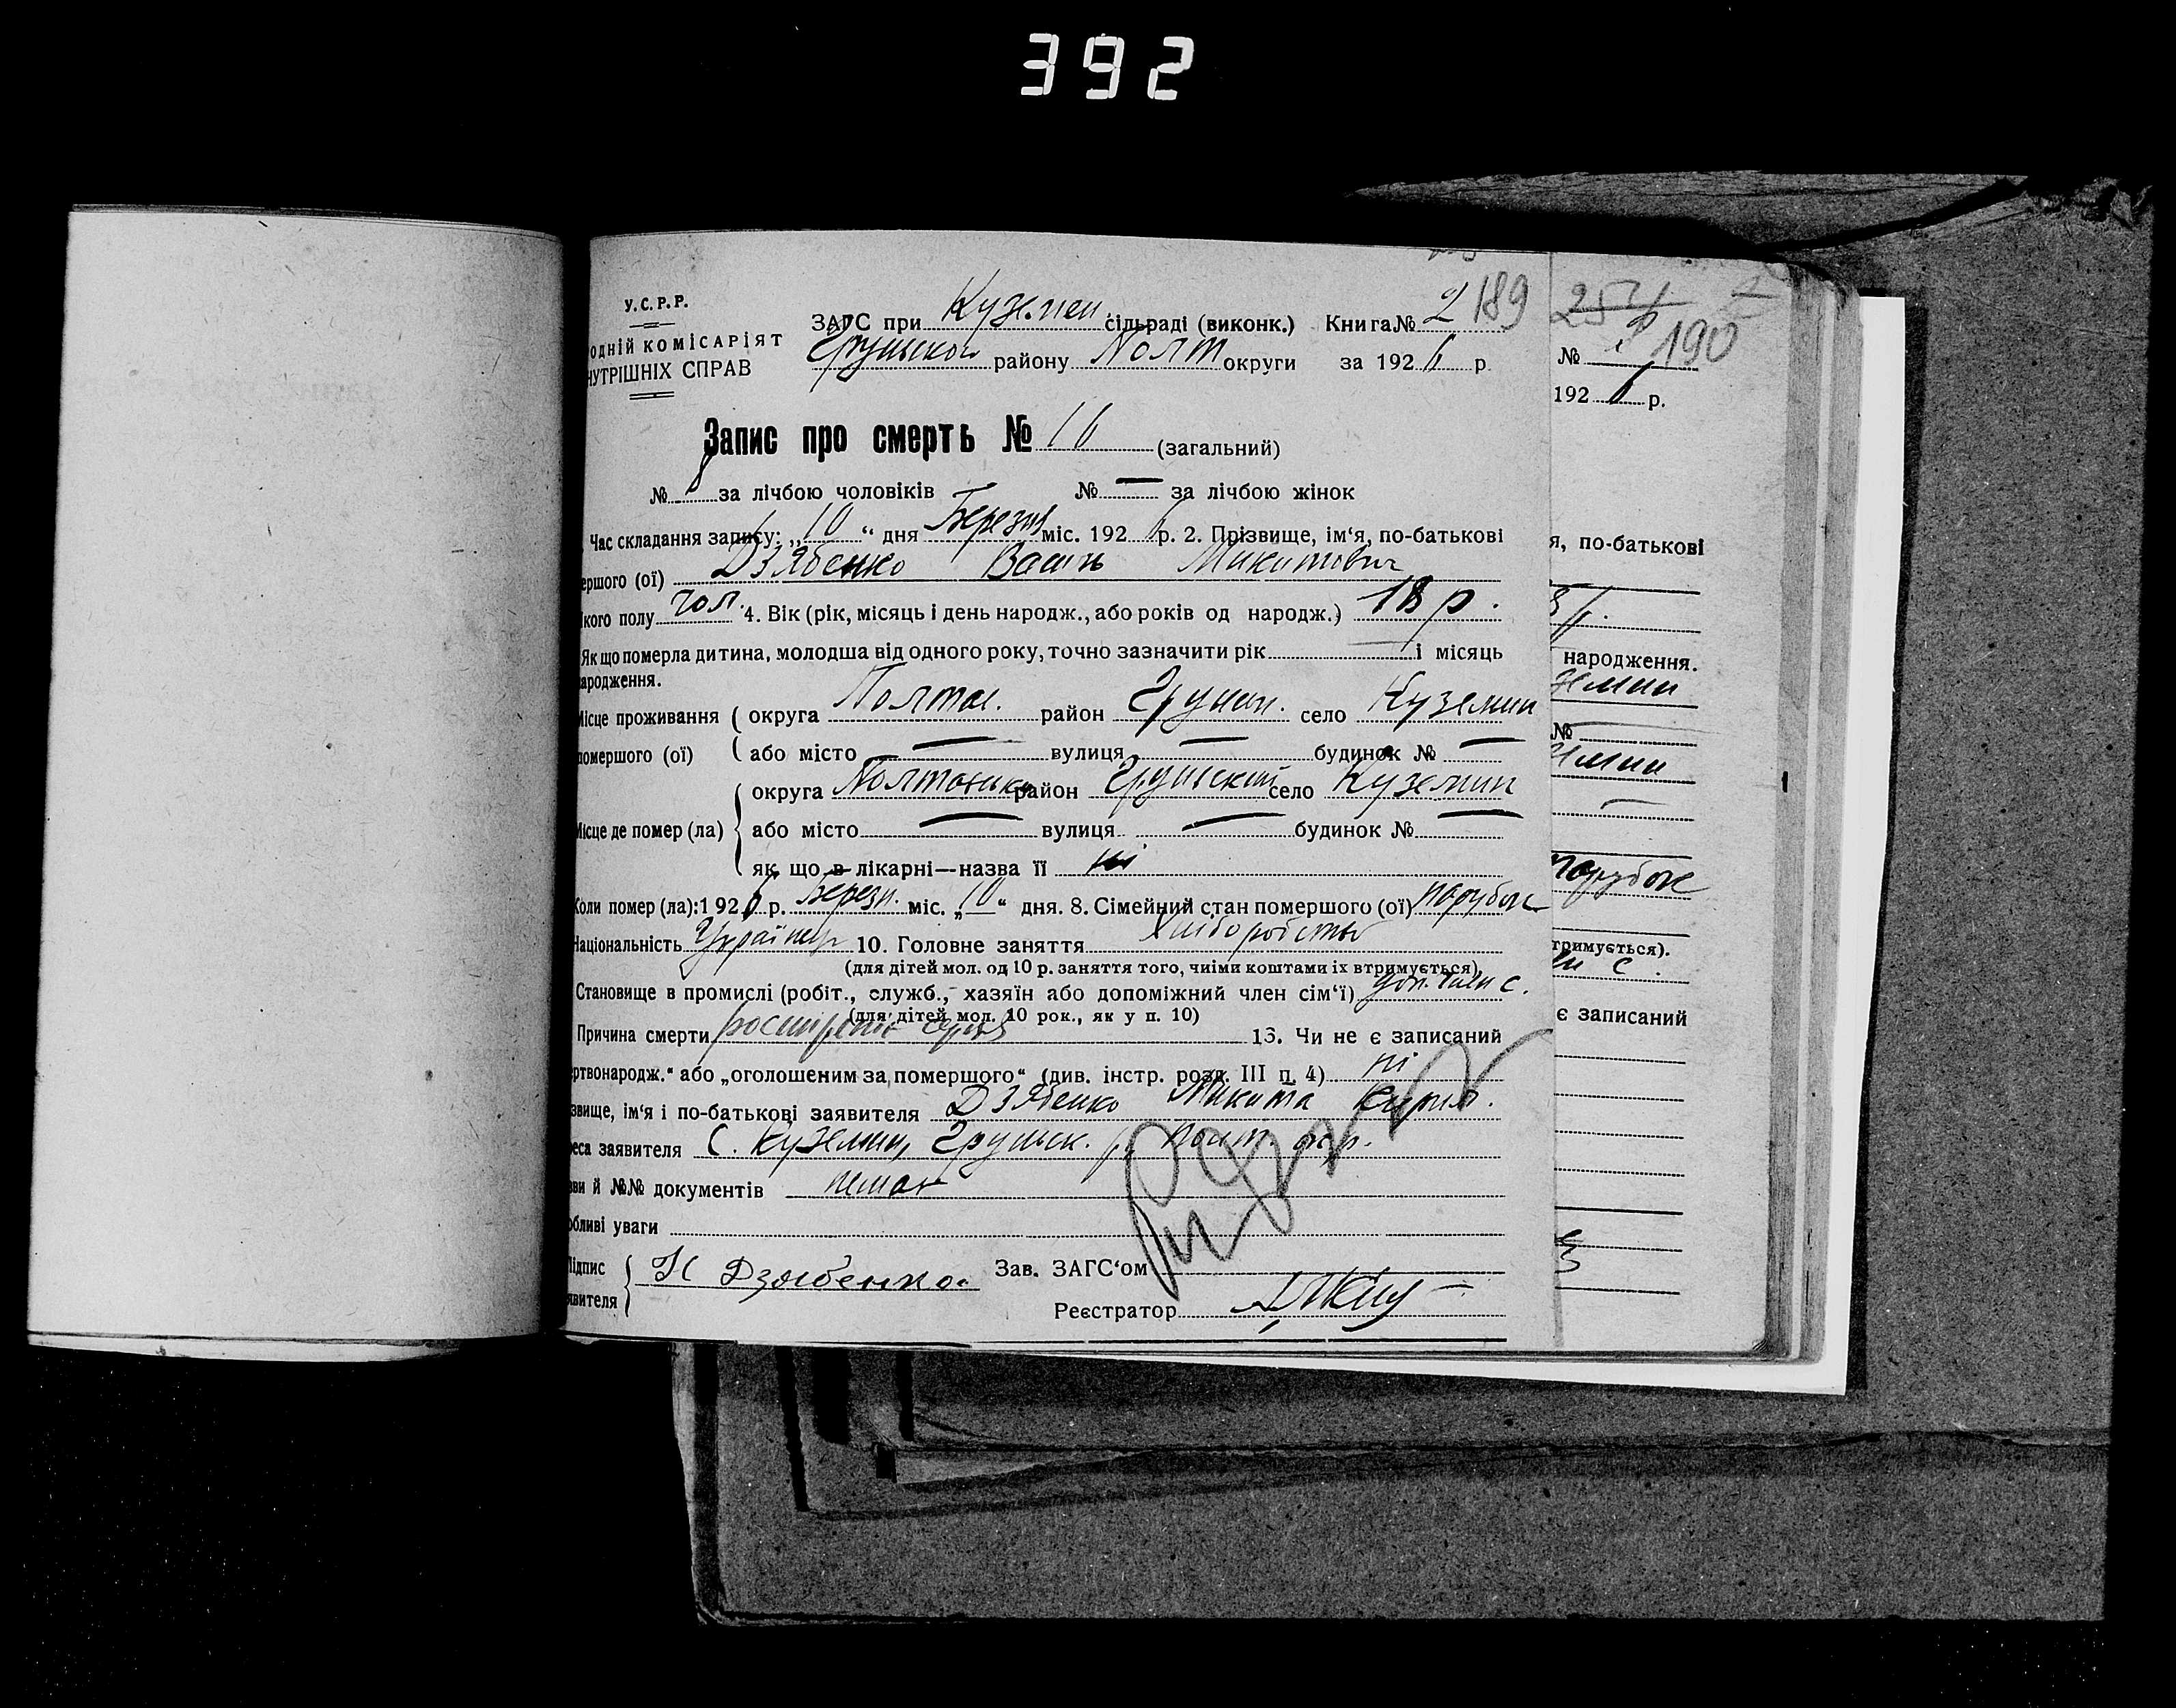 392
У.С.Р.Р.
одній КОМІСАРІЯТ
НУТРІШНІХ СПРАВ
ЗАГС при Куземен сільраді (виконк.) Книга № 2 189
Грунської району Полт округи за 1926 р.
Запис про смерть № 16 (загальний)
№ 8 за лічбою чоловіків № — за лічбою жінок
Час складання запису: „10“ дня Березня міс. 1926 р. 2. Прізвище, ім‘я, по-батькові
ершого (ої) Дзябенко Василь Микитович
кого полу чол. 4. Вік (рік, місяць і день народж., або років од народж.) 18 р.
Як що померла дитина, молодша від одного року, точно зазначити рік — і місяць
ародження.
Місце проживання ( округа Полтав. район Грунск. село Куземин
помершого (ої) ( або місто — вулиця — будинок № —
округа Полтавська район Грунський село Куземин
Місце де помер (ла) { або місто — вулиця — будинок № —
як що в лікарні—назва її ні
Коли помер (ла): 1926 р. Березн. міс. „10“ дня. 8. Сімейний стан помершого (ої) парубок
Національність Українец 10. Головне заняття Хліборобство
(для дітей мол. од 10 р. заняття того, чиїми коштами їх втримується).
Становище в промислі (робіт., служб., хазяїн або допоміжний член сім‘ї) доп. член с.
(для дітей мол. 10 рок., як у п. 10)
Причина смерти 13. Чи не є записаний
ртвонародж.“ або „оголошеним за помершого“ (див. інстр. розд. III п. 4) ні
звище, ім‘я і по-батькові заявителя Дзябенко Микита Кирил.
еса заявителя с. Куземин, Грунськ. р. Полт. окр.
зви й №№ документів немає
обливі уваги
Підпис { Н Дзябенко Зав. ЗАГС‘ом
явителя Реєстратор
254
№ 2 190
1926 р.
я, по-батькові
народження.
земин
№ —
земин
парубок
тримується).
ен с.
є записаний